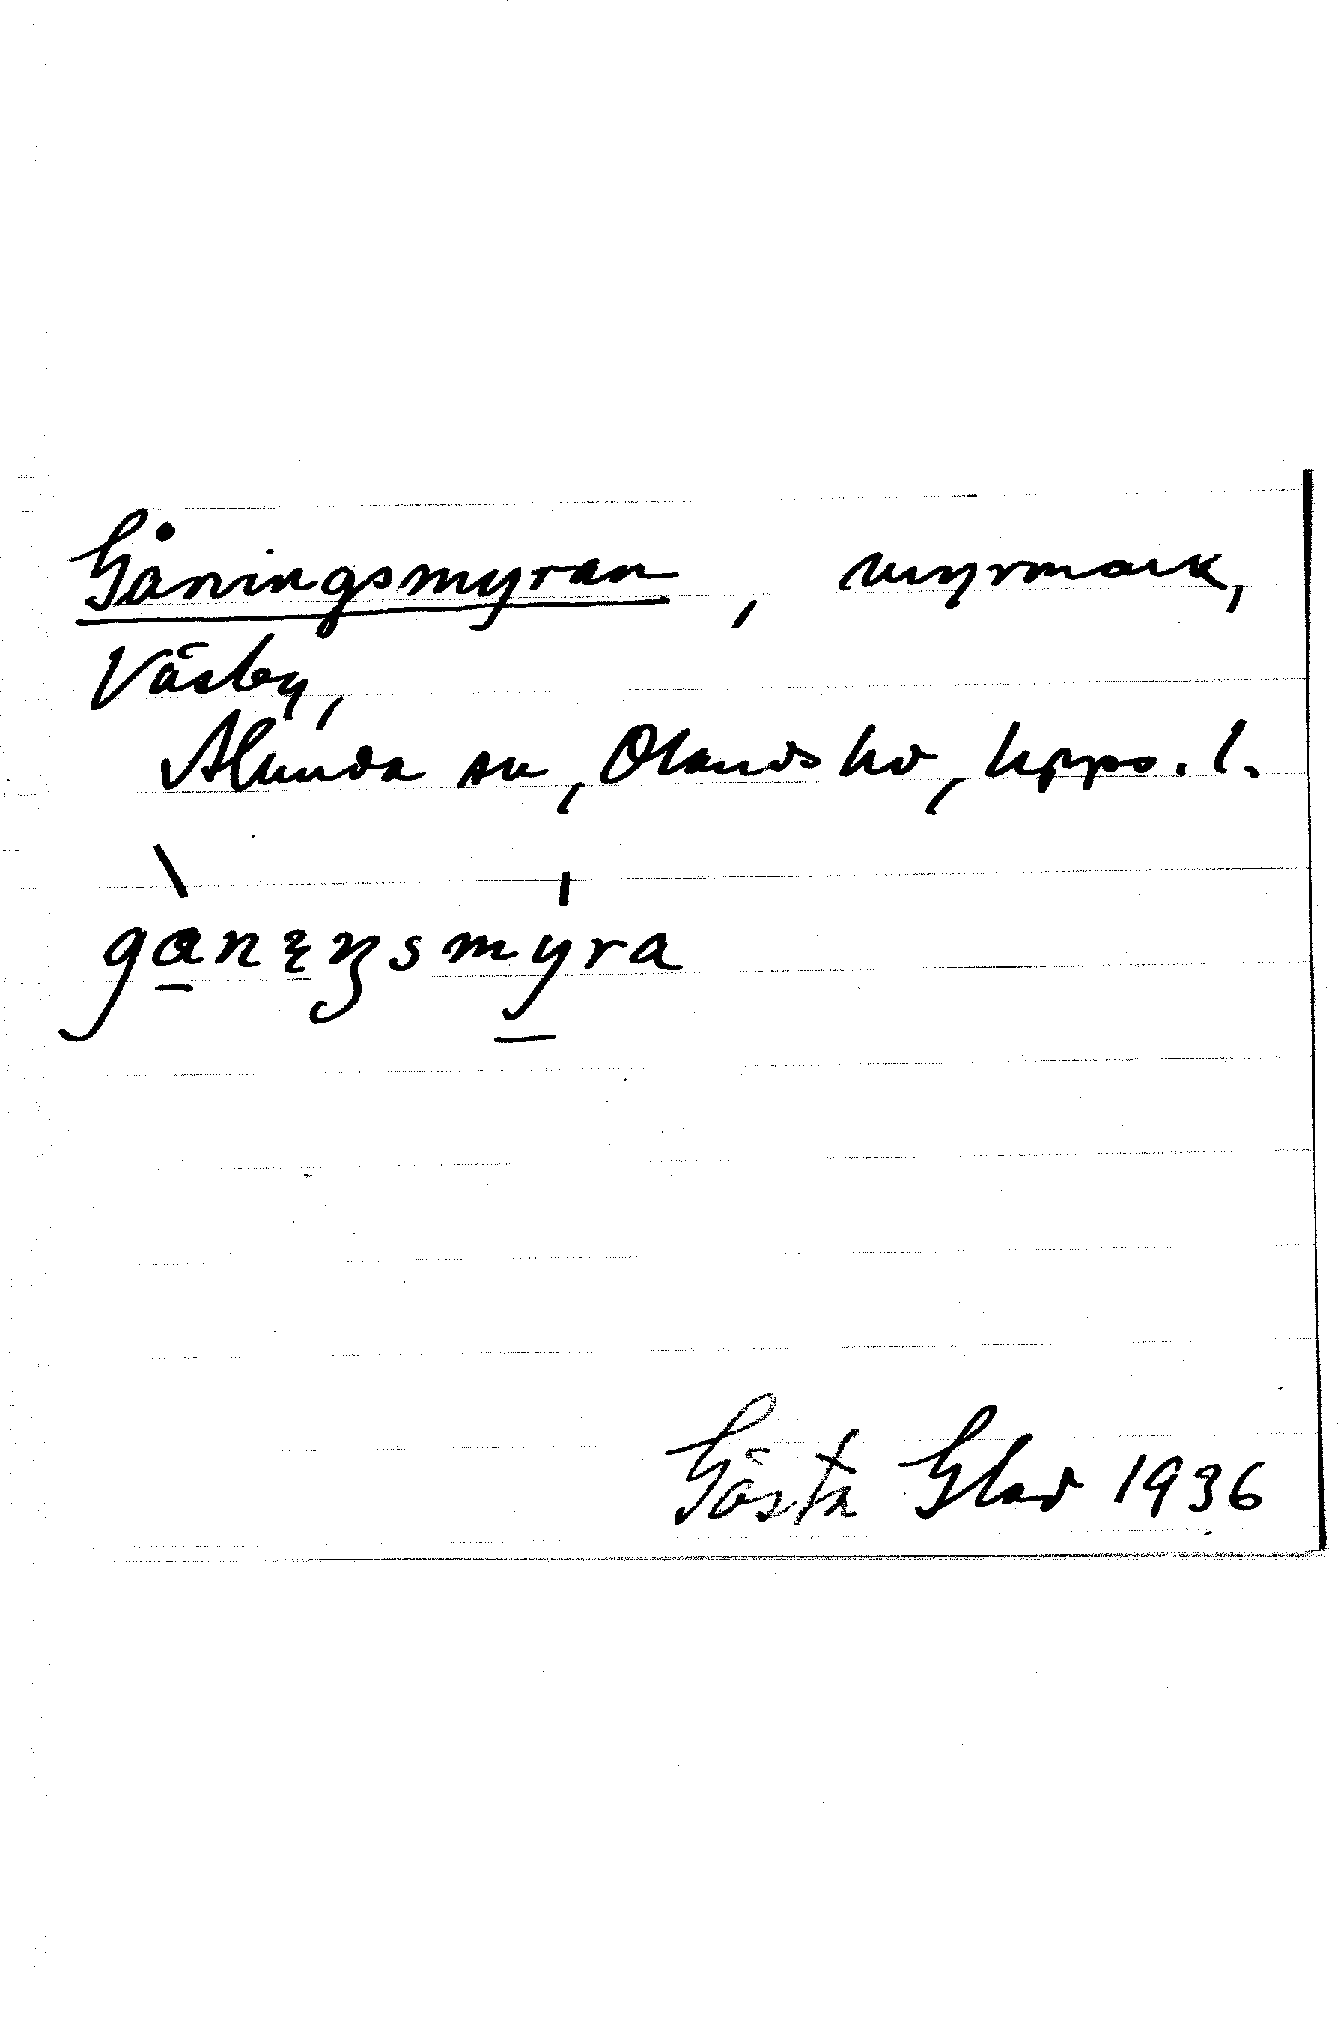 Gåningsmyran, myrmark,
Väsby,
Alunda sn, Olands hd, Upps. l.
gånıŋsmýra
Gösta Glad 1936